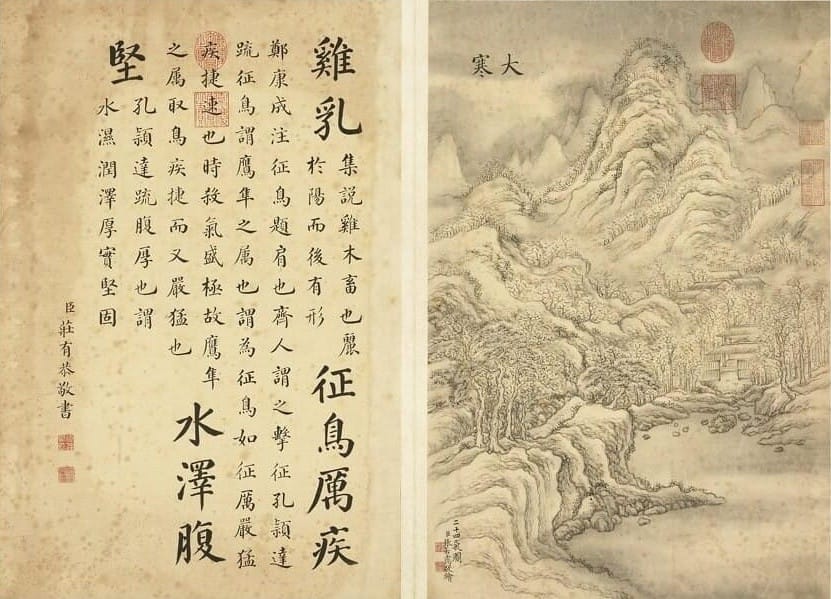 大寒
二十四氣圖
臣張
雞乳
集説雞木畜也麗
於陽而後有形
征鳥厲疾
鄭康成注征鳥題肩也齊人謂之擊征孔頴達
疏征鳥謂鷹隼之属也謂為征鳥如征厲嚴猛
疾捷速也時殺氣盛極故鷹隼
之属取鳥疾捷而又嚴猛也
水澤腹
堅
孔頴達疏腹厚也謂
水濕潤澤厚實堅固
臣莊有恭敬書